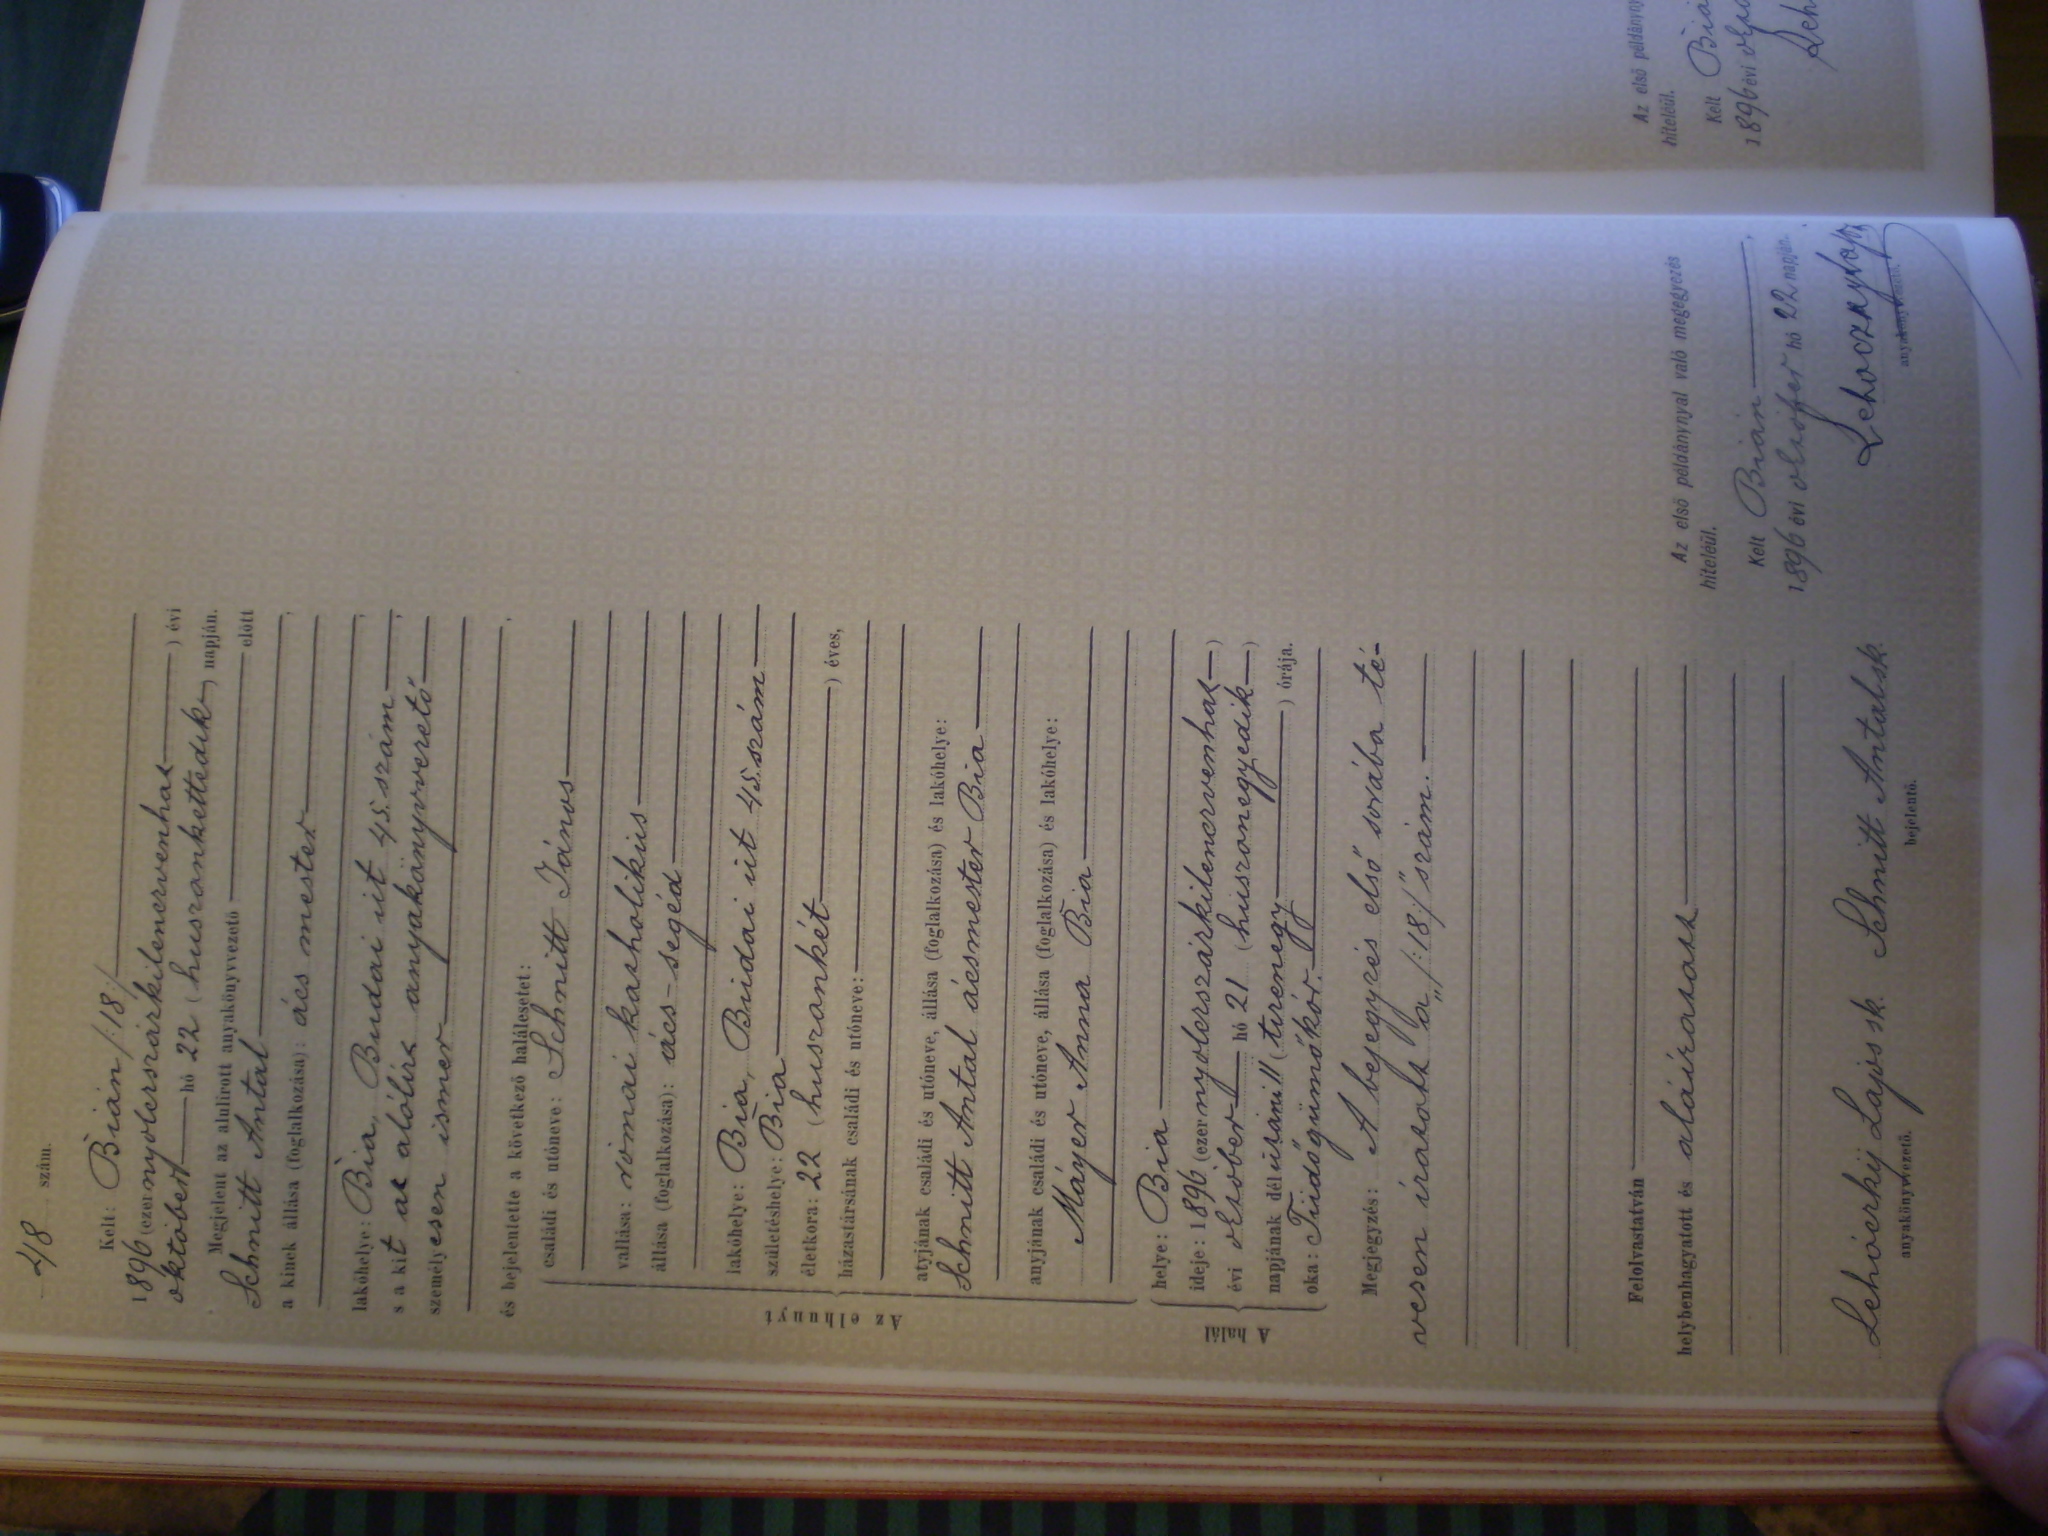 48 szám.
Kelt: Bián /:18:/
1896 (ezer nyolczszázkilenczvenhat ) évi
október hó 22 (huszonkettedik) napján.
Megjelent az alulirott anyakönyvvezető előtt
Schmitt Antal
a kinek állása (foglalkozása): ács mester
lakóhelye: Bia, Budai út 45. szám
s a kit az alólírt anyakönyvvezető
személyesen ismer
és bejelentette a következő halálesetet:
Az elhunyt
családi és utóneve: Schmitt János
vallása: római katholikus
állása (foglalkozása): ács-segéd
lakóhelye: Bia, Budai út 45. szám
születéshelye: Bia
életkora: 22 (huszonkét ) éves,
házastársának családi és utóneve:
atyjának családi és utóneve, állása (foglalkozása) és lakóhelye:
Schmitt Antal ácsmester Bia
anyjának családi és utóneve, állása (foglalkozása) és lakóhelye:
Máyer Anna Bia
A halál
helye: Bia
ideje: 1896 (ezer nyolczszázkilenczvenhat )
évi október hó 21 (huszonegyedik )
napjának dél úzáni 11 (tizenegy ) órája.
oka: Tüdőgümőkór.
Megjegyzés: A bejegyzés első sorába té-
vesen iratott a „/:18:/" szám.
Felolvastatván
helybenhagyatott és aláíratott
Lehóczky Lajos sk. Schmitt Antal sk.
anyakönyvvezető. bejelentő.
Az első példánynyal való megegyezés
hiteléül.
Kelt Bián ,
1896 évi október hó 22 napján.
Lehoczky Lajos
anyakönyvvezető.
Az első példányny
hiteléül.
Kelt Biá
1896 évi
Leh